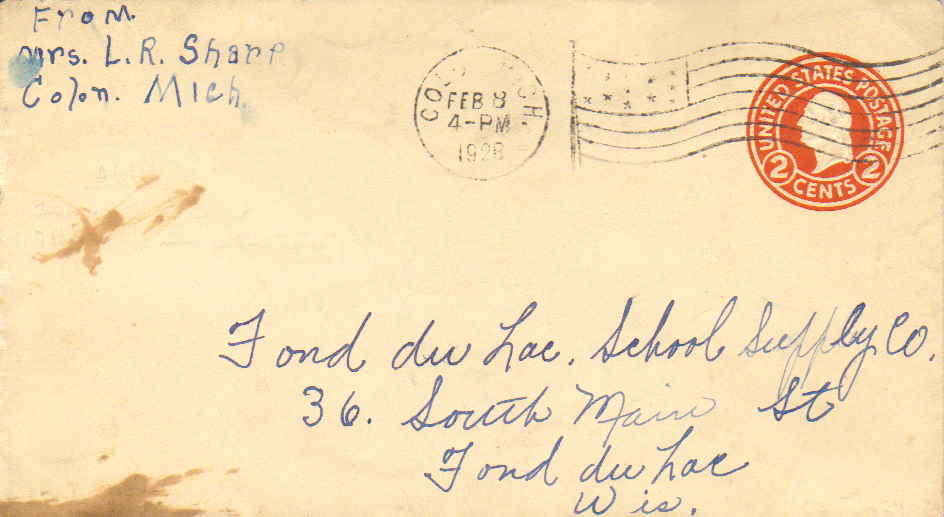 From
Mrs. L. R. Sharp
Colon. Mich.
COLON MICH
FEB 8
4-PM
1928
UNITED STATES POSTAGE
2 CENTS 2
Fond du Lac. School Supply Co.
36. South Main St
Fond du Lac
Wis.